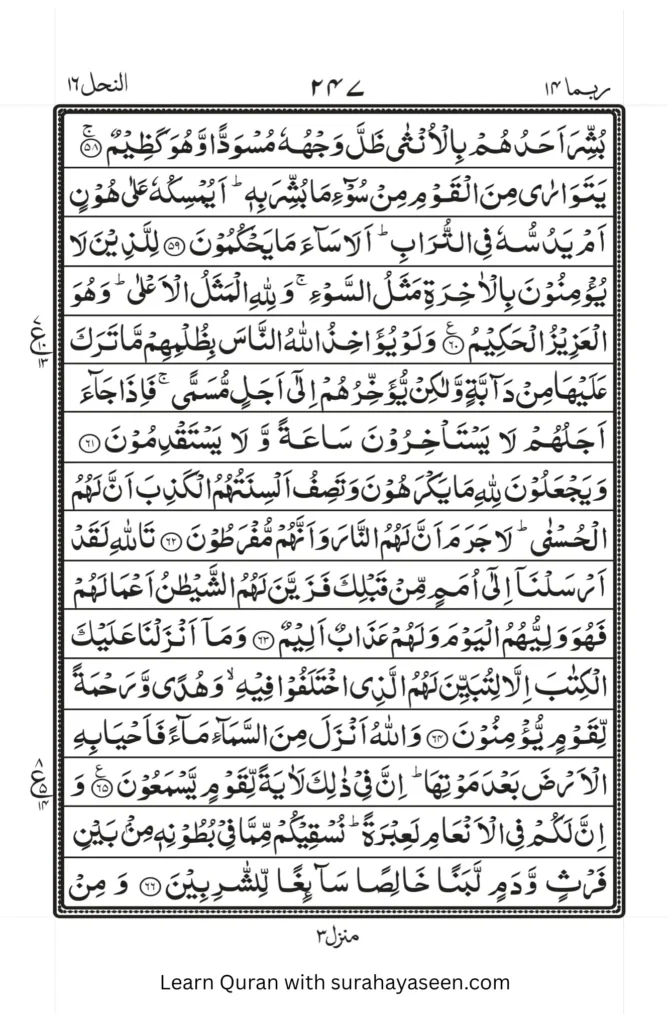 ربما ۱۴ ۲۴۷ النحل ۱۶
بُشِّرَ اَحَدُهُمْ بِالْاُنْثٰى ظَلَّ وَجْهُهٗ مُسْوَدًّا وَّهُوَ كَظِيْمٌ ۚ‏﴿۵۸﴾
يَتَوَارٰى مِنَ الْقَوْمِ مِنْ سُوْٓءِ مَا بُشِّرَ بِهٖ ؕ اَيُمْسِكُهٗ عَلٰى هُوْنٍ
اَمْ يَدُسُّهٗ فِى التُّرَابِ ؕ اَلَا سَآءَ مَا يَحْكُمُوْنَ ﴿۵۹﴾ لِلَّذِيْنَ لَا
يُؤْمِنُوْنَ بِالْاٰخِرَةِ مَثَلُ السَّوْءِ ۚ وَلِلّٰهِ الْمَثَلُ الْاَعْلٰى ؕ وَهُوَ
الْعَزِيْزُ الْحَكِيْمُ ﴿۶۰﴾ ع وَلَوْ يُؤَاخِذُ اللّٰهُ النَّاسَ بِظُلْمِهِمْ مَّا تَرَكَ
۷ ع ۱۰ ۱۳
عَلَيْهَا مِنْ دَآبَّةٍ وَّلٰكِنْ يُّؤَخِّرُهُمْ اِلٰٓى اَجَلٍ مُّسَمًّى ۚ فَاِذَا جَآءَ
اَجَلُهُمْ لَا يَسْتَاْخِرُوْنَ سَاعَةً وَّ لَا يَسْتَقْدِمُوْنَ ﴿۶۱﴾
وَيَجْعَلُوْنَ لِلّٰهِ مَا يَكْرَهُوْنَ وَتَصِفُ اَلْسِنَتُهُمُ الْكَذِبَ اَنَّ لَهُمُ
الْحُسْنٰى ؕ لَا جَرَمَ اَنَّ لَهُمُ النَّارَ وَاَنَّهُمْ مُّفْرَطُوْنَ ﴿۶۲﴾ تَاللّٰهِ لَقَدْ
اَرْسَلْنَآ اِلٰٓى اُمَمٍ مِّنْ قَبْلِكَ فَزَيَّنَ لَهُمُ الشَّيْطٰنُ اَعْمَالَهُمْ
فَهُوَ وَلِيُّهُمُ الْيَوْمَ وَلَهُمْ عَذَابٌ اَلِيْمٌ ﴿۶۳﴾ وَمَآ اَنْزَلْنَا عَلَيْكَ
الْكِتٰبَ اِلَّا لِتُبَيِّنَ لَهُمُ الَّذِى اخْتَلَفُوْا فِيْهِ ۙ وَهُدًى وَّرَحْمَةً
لِّقَوْمٍ يُّؤْمِنُوْنَ ﴿۶۴﴾ وَاللّٰهُ اَنْزَلَ مِنَ السَّمَآءِ مَآءً فَاَحْيَا بِهِ
الْاَرْضَ بَعْدَ مَوْتِهَا ؕ اِنَّ فِىْ ذٰلِكَ لَاٰيَةً لِّقَوْمٍ يَّسْمَعُوْنَ ﴿۶۵﴾ ع وَ
۸ ع ۵ ۱۴
اِنَّ لَكُمْ فِى الْاَنْعَامِ لَعِبْرَةً ؕ نُسْقِيْكُمْ مِّمَّا فِىْ بُطُوْنِهٖ مِنْۢ بَيْنِ
فَرْثٍ وَّدَمٍ لَّبَنًا خَالِصًا سَآئِغًا لِّلشّٰرِبِيْنَ ﴿۶۶﴾ وَ مِنْ
منزل ۳
Learn Quran with surahayaseen.com